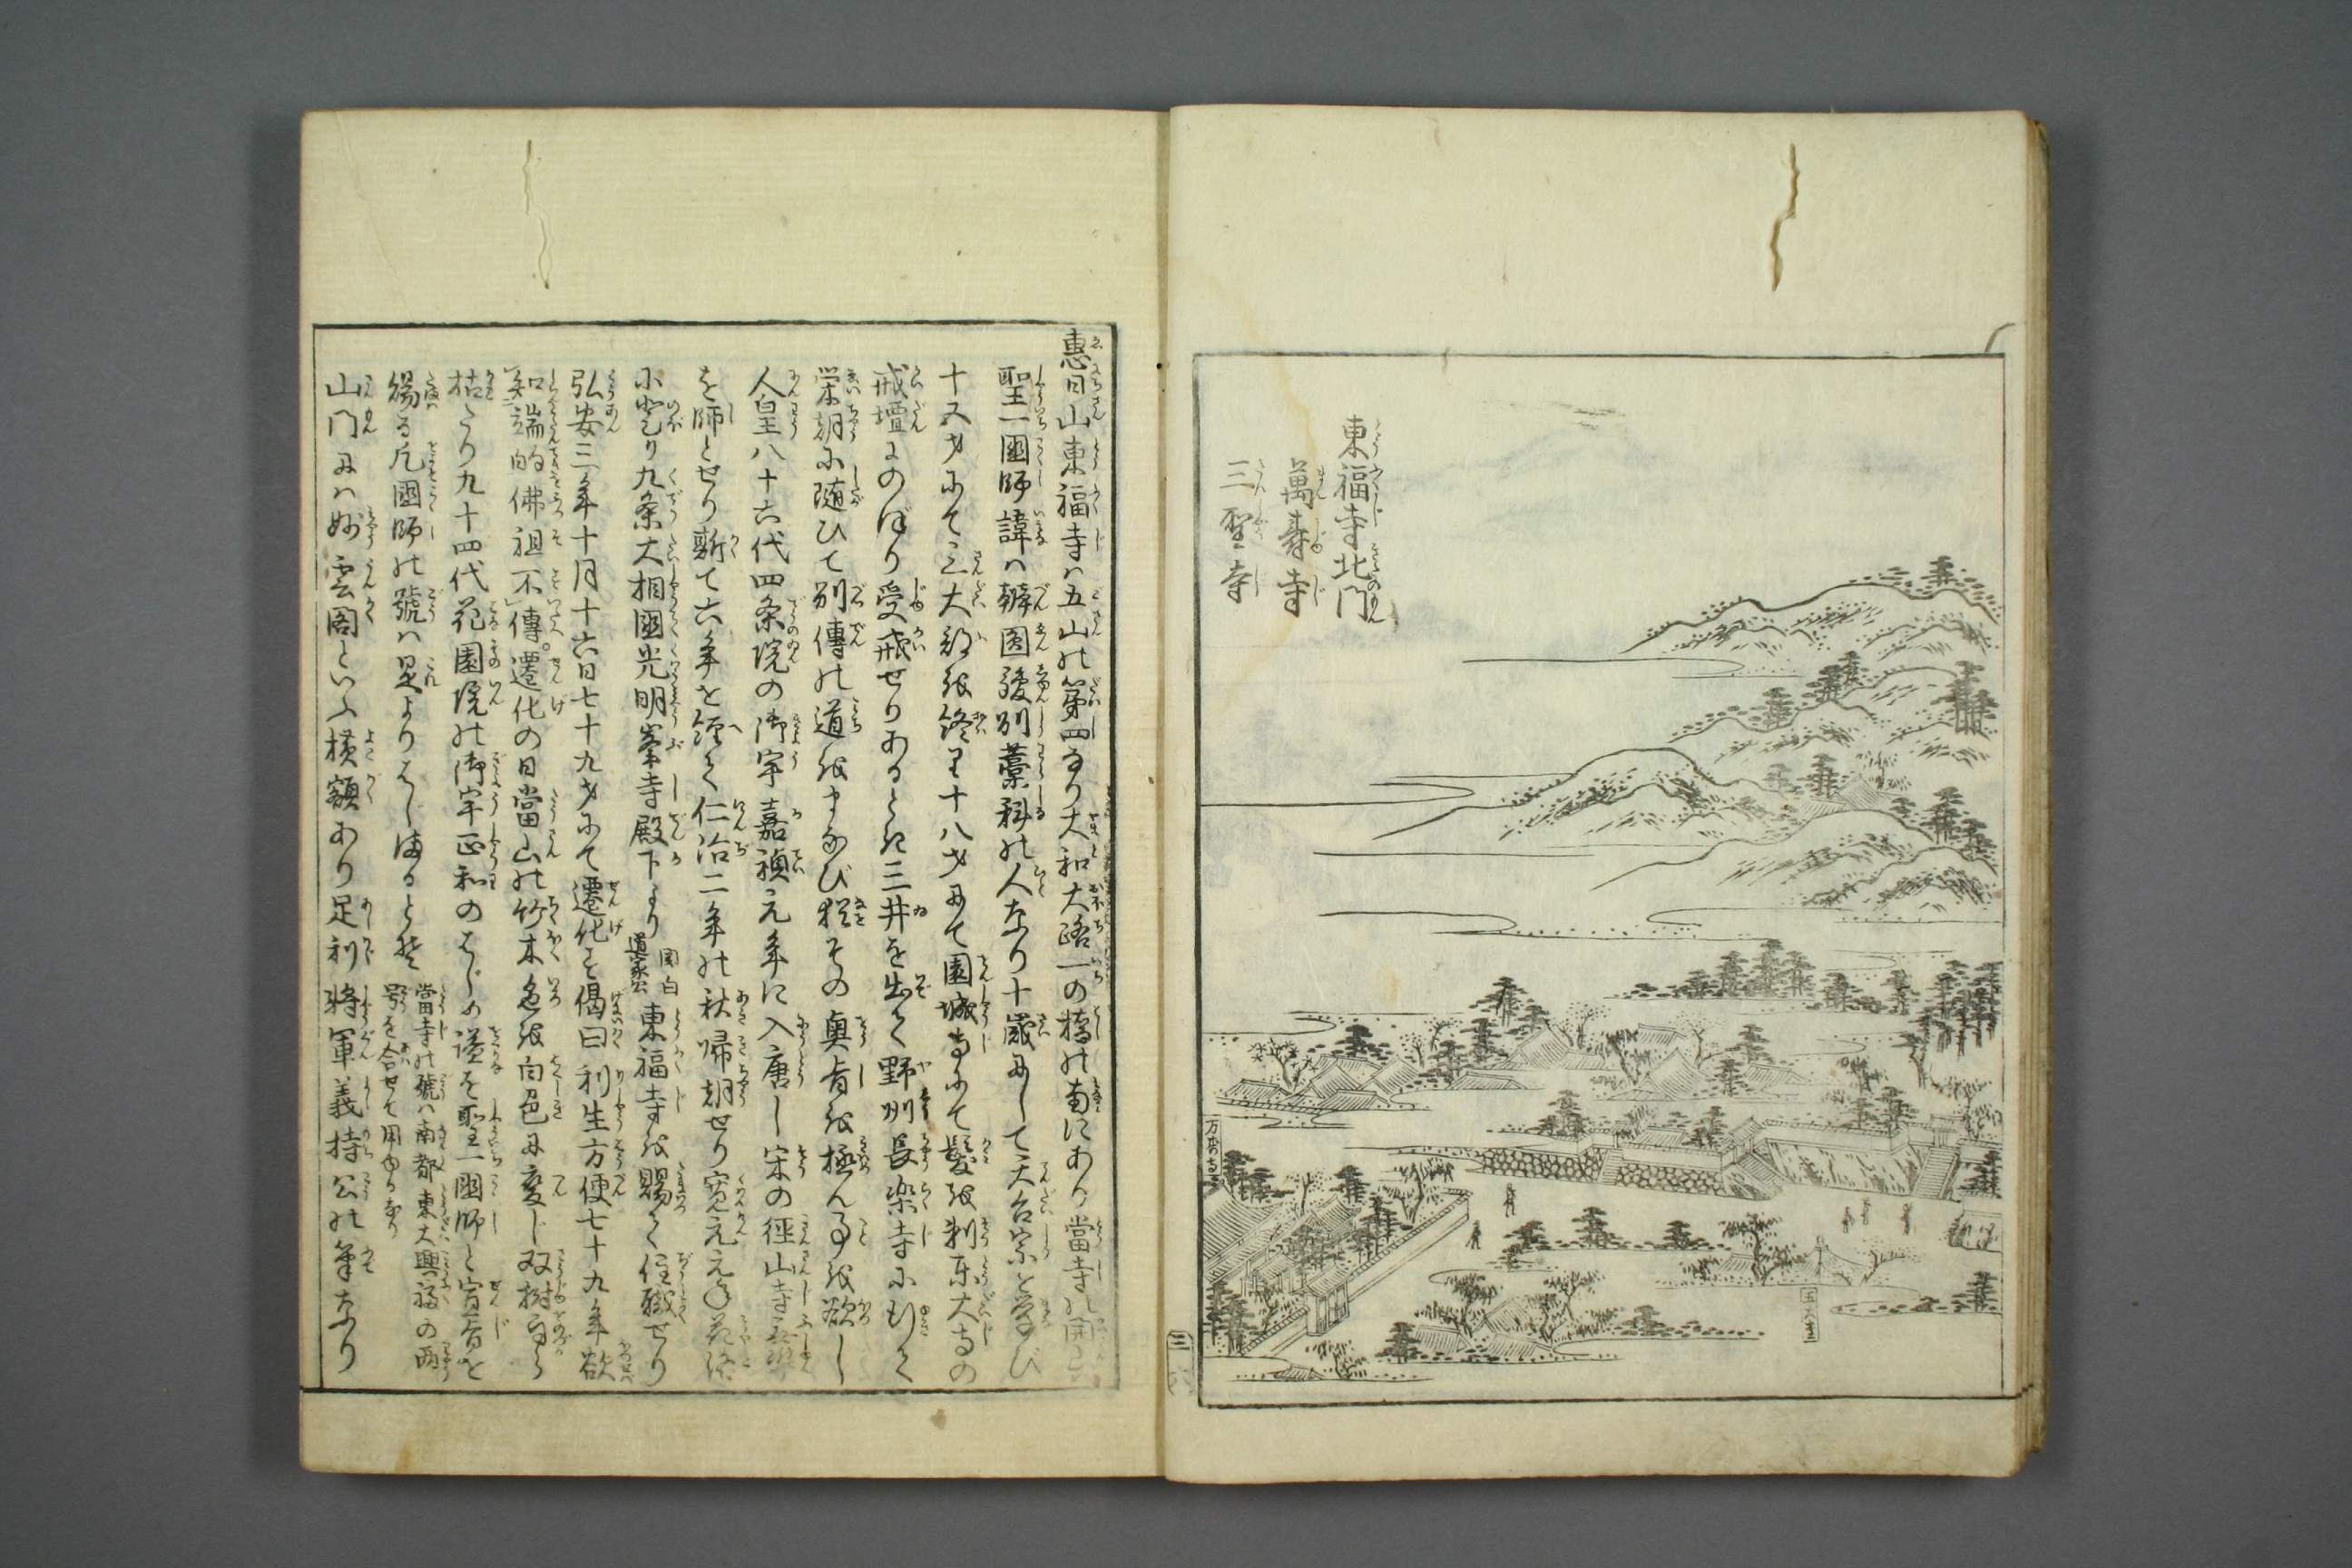 東福寺北門
萬壽寺
三聖寺
万寿寺
五大堂
三
惠日山東福寺ハ五山の第四なり大和大路一の橋の南にあり當寺の開
聖一國師諱ハ辨圓駿州藁科の人なり十歳にして天台宗を學び
十五才にて三大部を終り十八才にて園城寺にて髪を剃東大寺の
戒壇にのぼり受戒せりあるとき三井を出て野州長楽寺に行て
栄朝に随ひて別傳の道をまなび猶その奥旨を極ん事を欲し
人皇八十六代四条院の御宇嘉禎元年に入唐し宋の径山寺
を師とせり斯て六年を経て仁治二年の秋帰朝せり寛元元年花洛
に登り九条大相國光明峯寺殿下より関白道家公東福寺を賜て住職せり
弘安三年十月十六日七十九才にて遷化す偈曰利生方便七十九年欲
知端的佛祖不傳。遷化の日當山の竹木色を白色に変じ双樹
枯たり九十四代花園院の御宇正和のはじめ謚を聖一國師と宣旨を
賜る凡國師の號ハ是よりはじまるとぞ當寺の號ハ南都東大興福の両号を合せて用ゆるなり
山門にハ妙雲閣といふ横額あり足利将軍義持公の筆なり